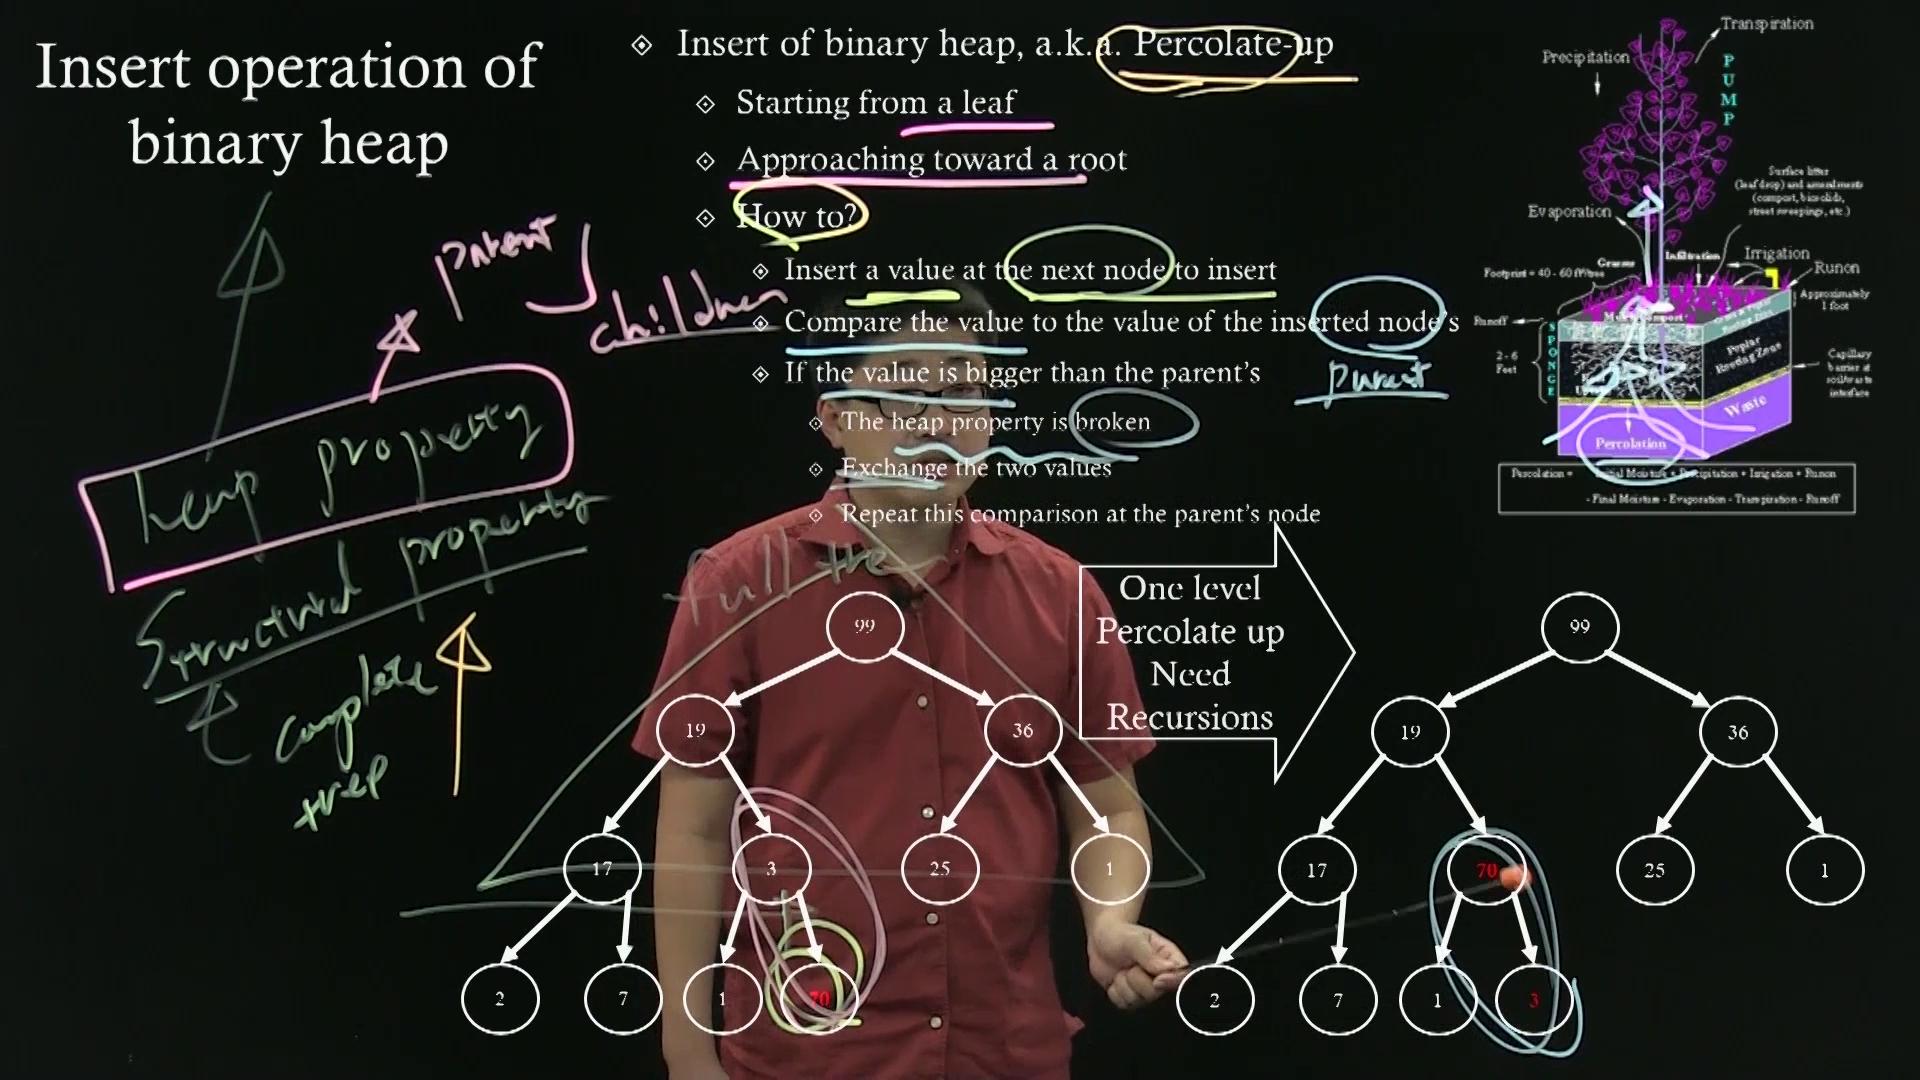 Insert operation of
binary heap
Insert of binary heap, a.k.a. Percolate-up
Starting from a leaf
Approaching toward a root
How to?
Insert a value at the next node to insert
Compare the value to the value of the inserted node's
If the value is bigger than the parent's
The heap property is broken
Exchange the two values
Repeat this comparison at the parent's node
parent
children
parent
heap property
Structural property
complete
tree
full tree
One level
Percolate up
Need
Recursions
99
19
36
17
3
25
1
2
7
1
70
99
19
36
17
70
25
1
2
7
1
3
Transpiration
Precipitation
PUMP
Surface litter
(leaf drop) and amendments
(compost, biosolids,
street sweepings, etc.)
Evaporation
Irrigation
Infiltration
Runon
Grasses
Footprint = 40 - 60 ft²/tree
Approximately
1 foot
Runoff
SPONGE
2 - 6
Feet
Poplar
Rooting Zone
Capillary
barrier at
soil/waste
interface
Waste
Percolation
Percolation = Initial Moisture + Precipitation + Irrigation + Runon
- Final Moisture - Evaporation - Transpiration - Runoff